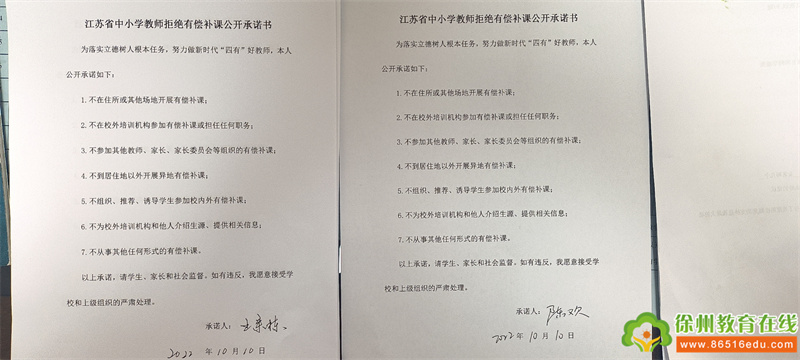 江苏省中小学教师拒绝有偿补课公开承诺书
为落实立德树人根本任务，努力做新时代“四有”好教师，本人
公开承诺如下：
1.不在住所或其他场地开展有偿补课；
2.不在校外培训机构参加有偿补课或担任任何职务；
3.不参加其他教师、家长、家长委员会等组织的有偿补课；
4.不到居住地以外开展异地有偿补课；
5.不组织、推荐、诱导学生参加校内外有偿补课；
6.不为校外培训机构和他人介绍生源、提供相关信息；
7.不从事其他任何形式的有偿补课。
以上承诺，请学生、家长和社会监督。如有违反，我愿意接受学
校和上级组织的严肃处理。
承诺人：
2022 年 10 月 10 日
江苏省中小学教师拒绝有偿补课公开承诺书
为落实立德树人根本任务，努力做新时代“四有”好教师，本人
公开承诺如下：
1.不在住所或其他场地开展有偿补课；
2.不在校外培训机构参加有偿补课或担任任何职务；
3.不参加其他教师、家长、家长委员会等组织的有偿补课；
4.不到居住地以外开展异地有偿补课；
5.不组织、推荐、诱导学生参加校内外有偿补课；
6.不为校外培训机构和他人介绍生源、提供相关信息；
7.不从事其他任何形式的有偿补课。
以上承诺，请学生、家长和社会监督。如有违反，我愿意接受学
校和上级组织的严肃处理。
承诺人：陈欢
2022 年 10 月 10 日
徐州教育在线
www.86516edu.com